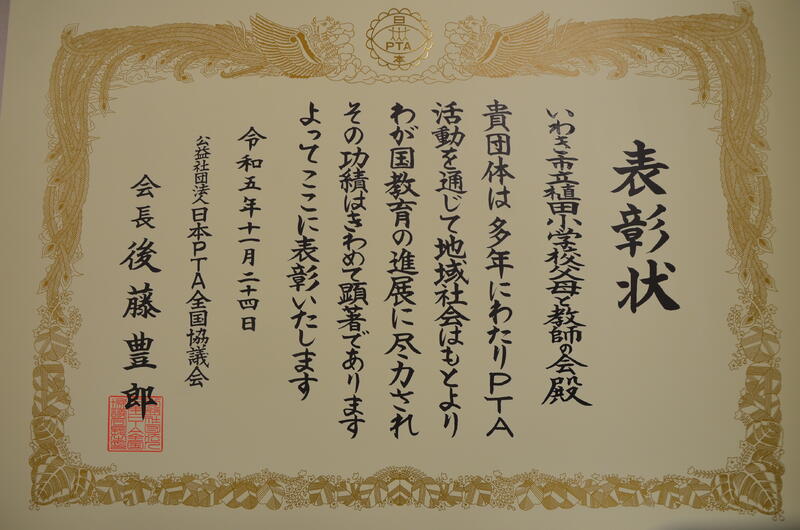 日
PTA
本
表彰状
いわき市立植田小学校父母と教師の会殿
貴団体は多年にわたりPTA
活動を通じて地域社会はもとより
わが国教育の進展に尽力され
その功績はきわめて顕著であります
よってここに表彰いたします
令和五年十一月二十四日
公益社団法人日本PTA全国協議会
会長後藤豊郎